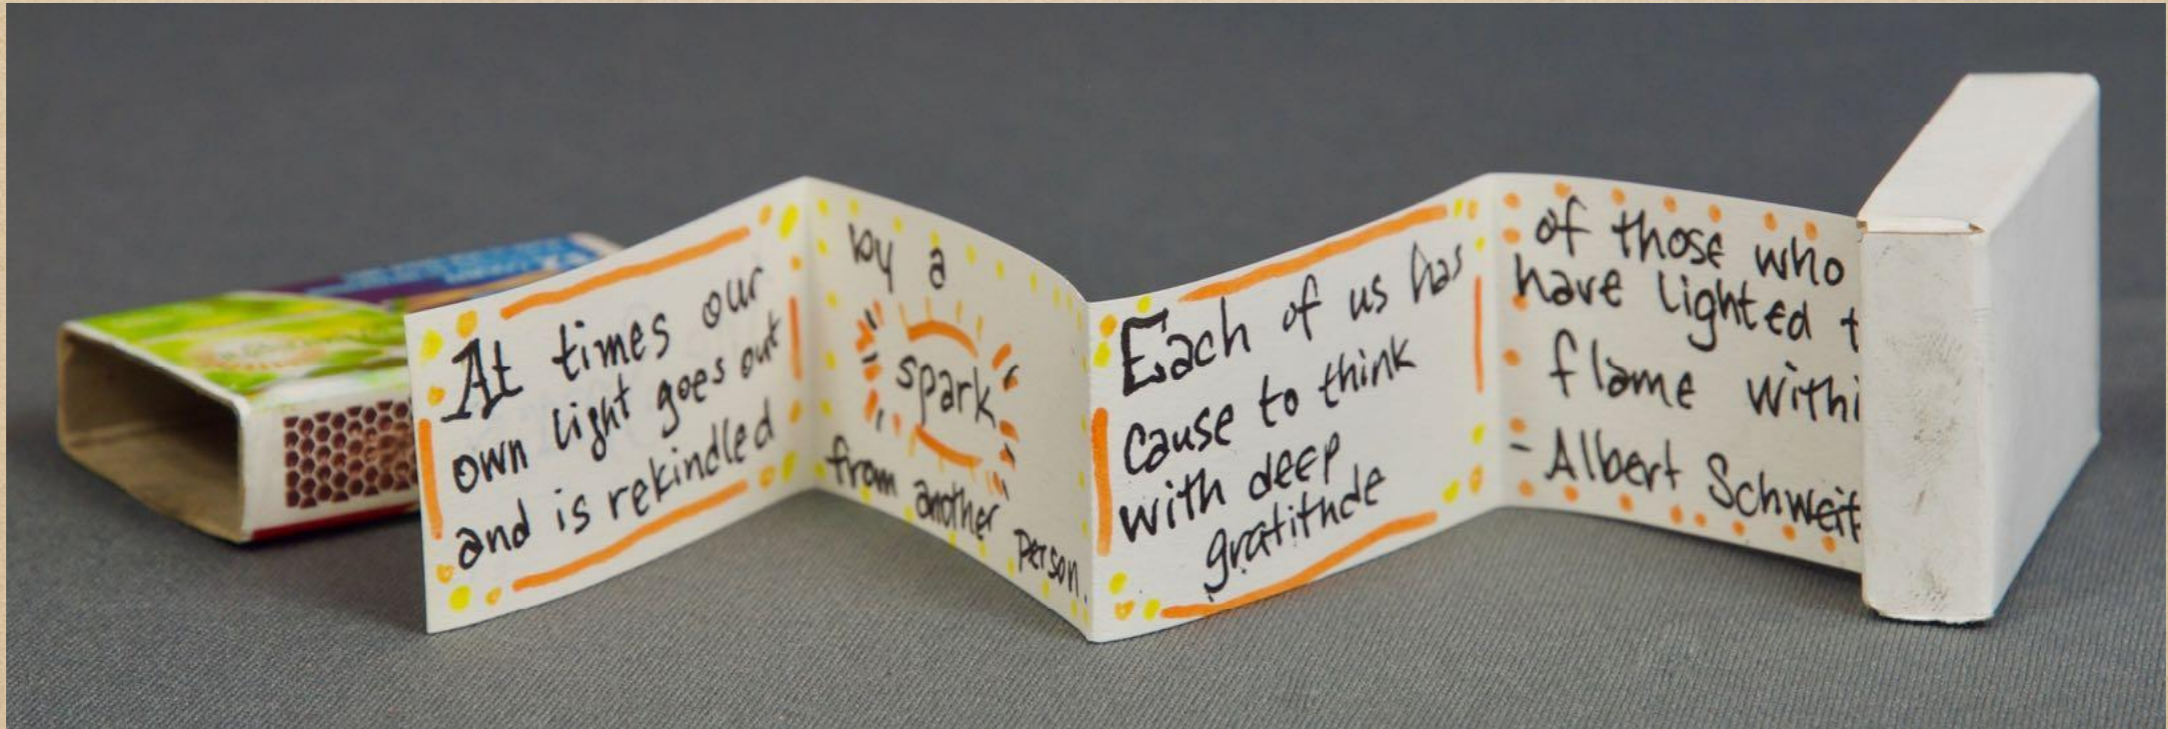 At times our
own light goes out
and is rekindled
by a
spark
from another person.
Each of us has
cause to think
with deep
gratitude
of those who
have lighted t
flame withi
- Albert Schweit